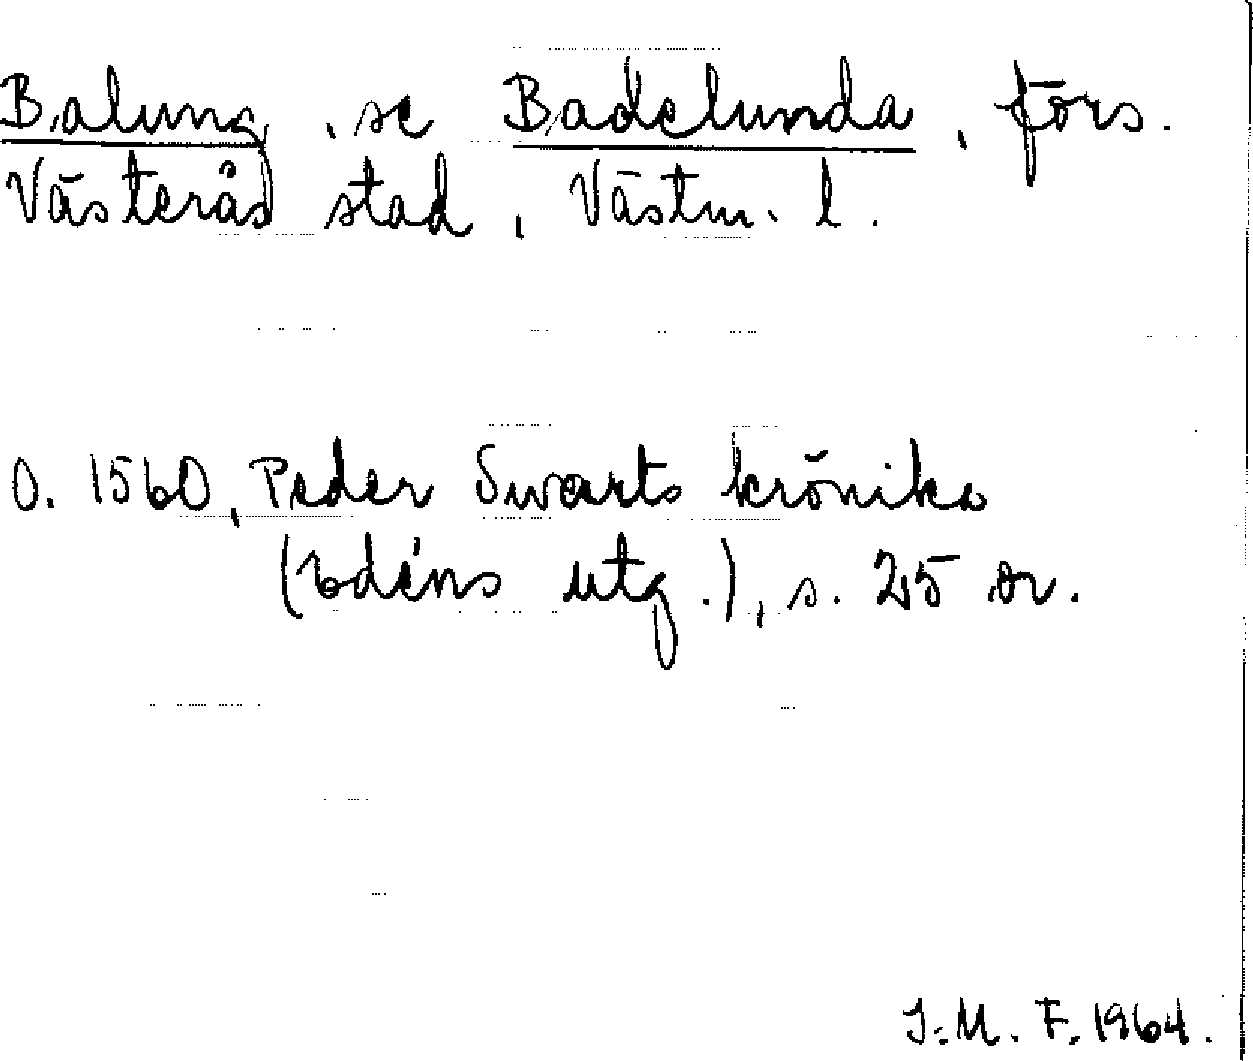 Balung, se Badelunda, förs.
Västerås stad, Västm. l.
O. 1560, Peder Swarts krönika
(Edéns utg.), s. 25 or.
J.M.F. 1964.